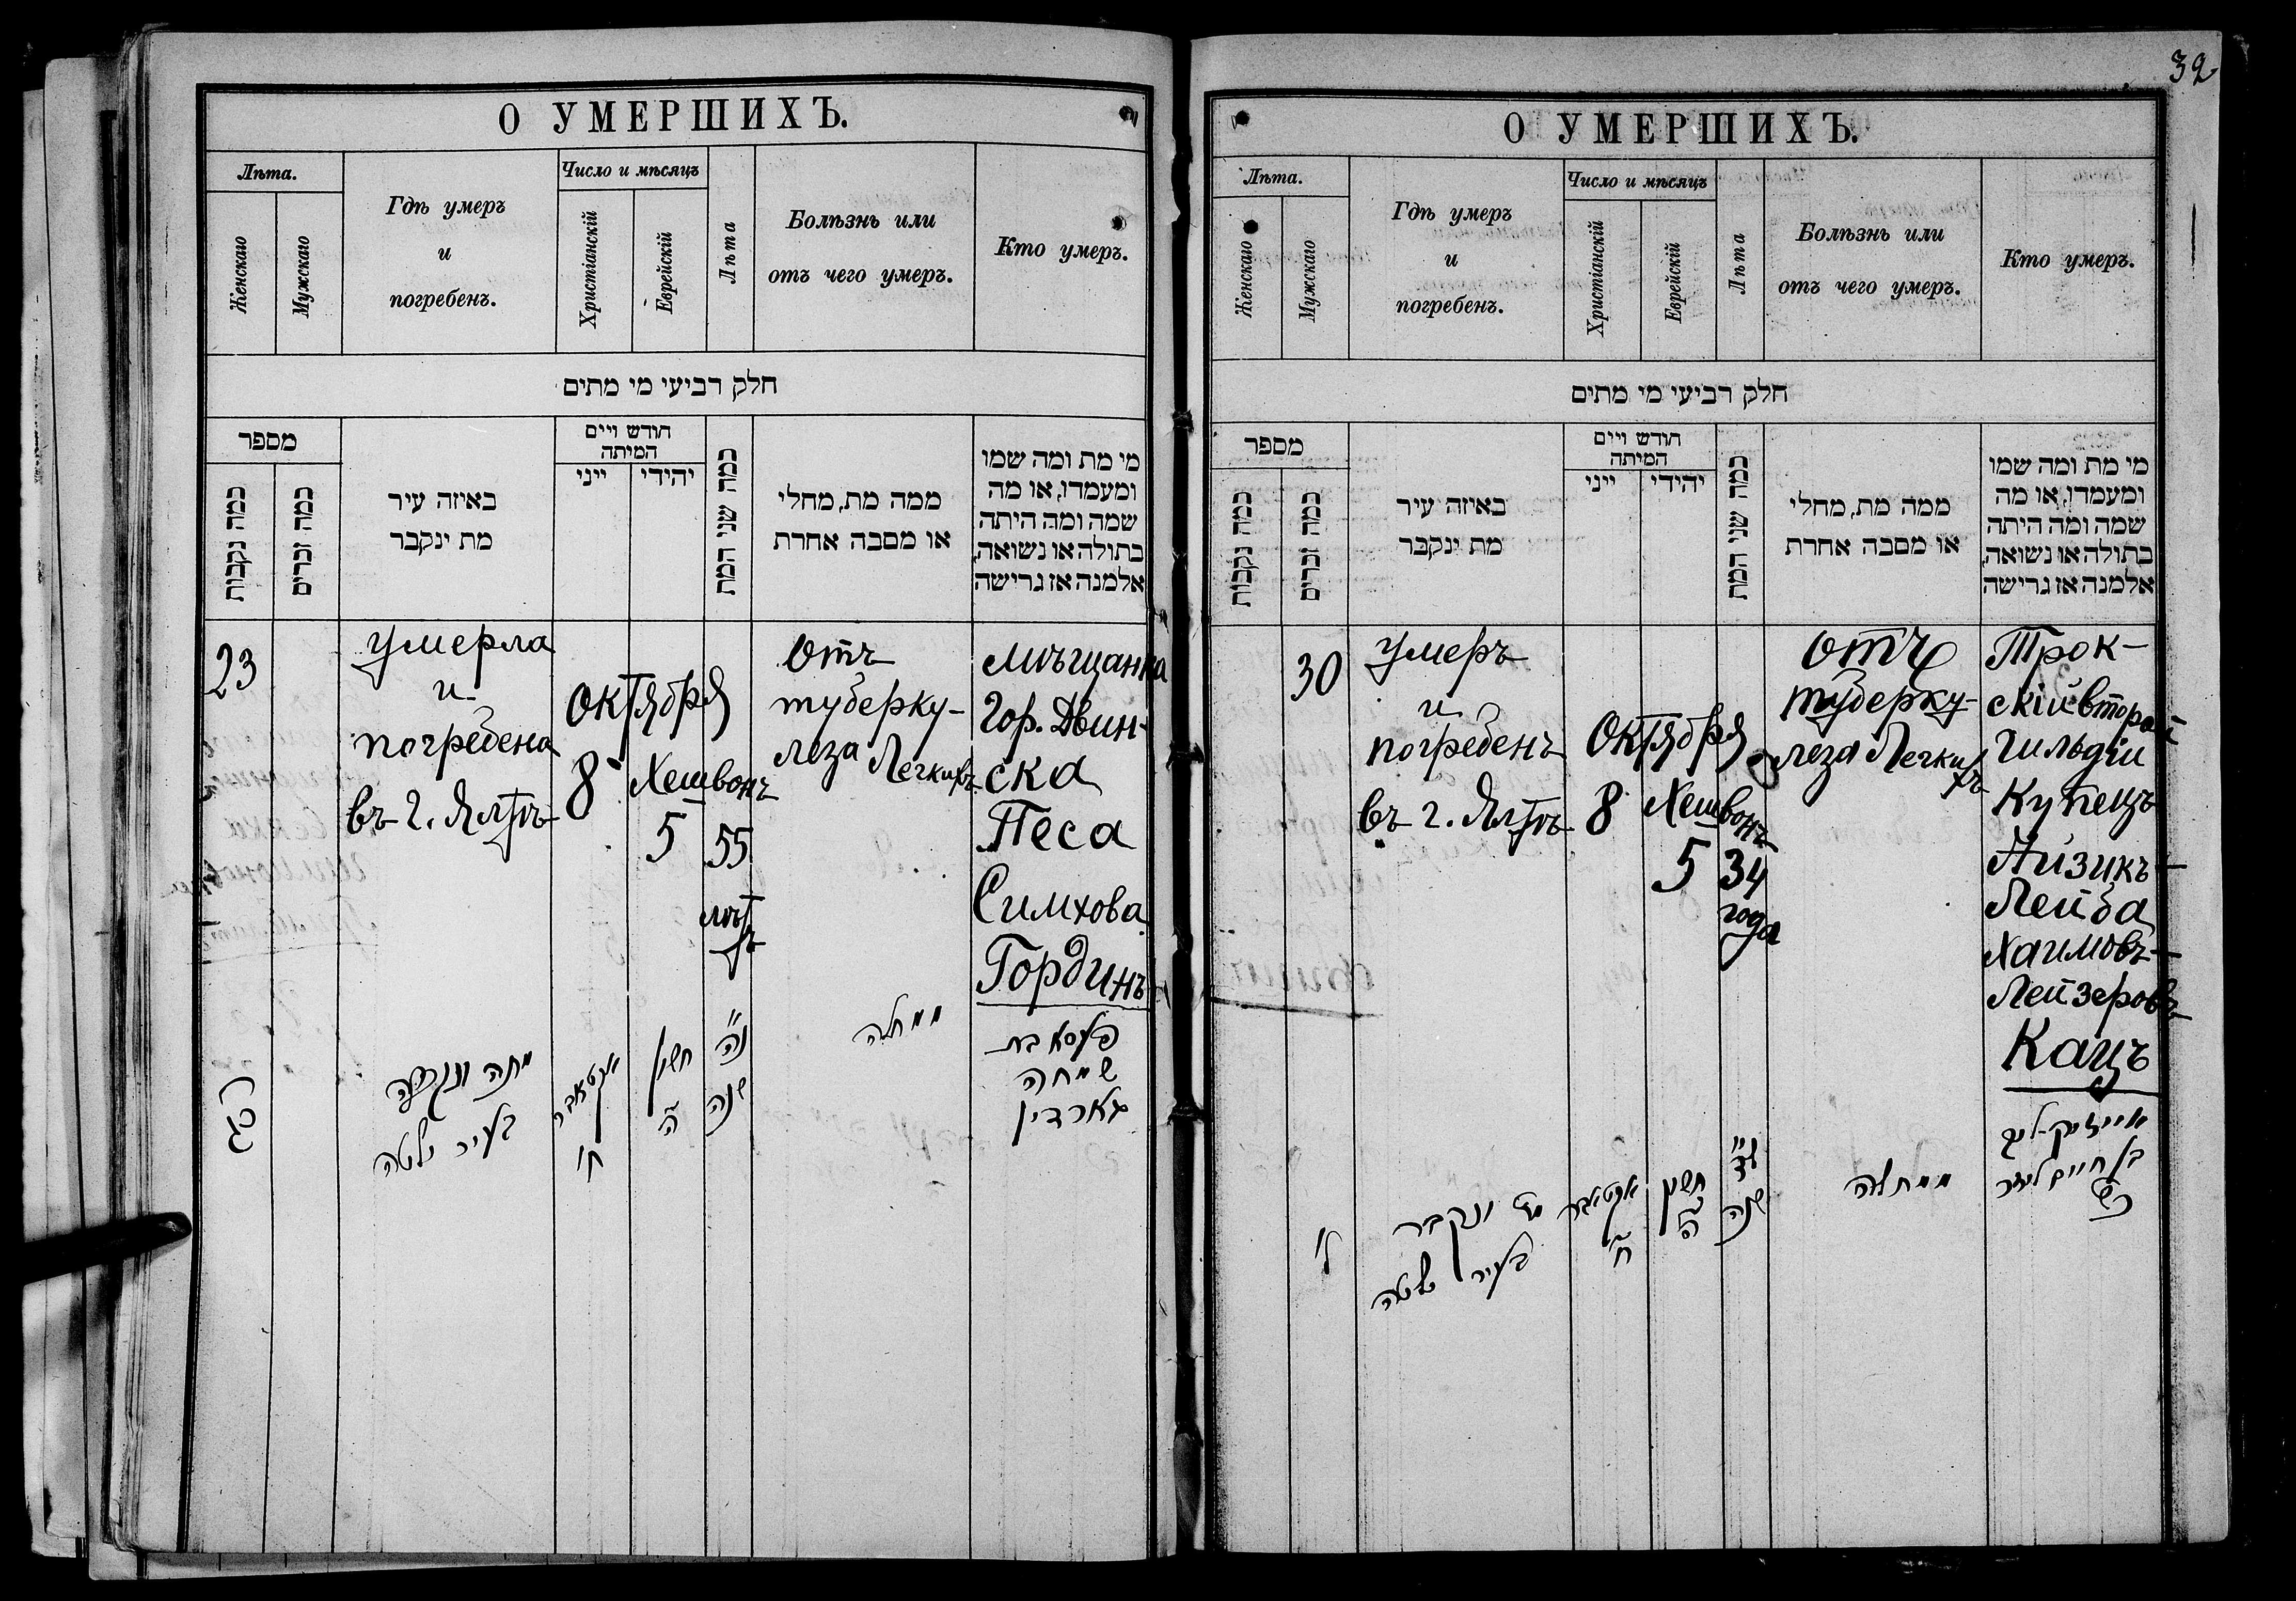 О УМЕРШИХЪ.
Лѣта.
Женскаго
Мужскаго
Гдѣ умеръ
и
погребенъ.
Число и мѣсяцъ
Христіанскій
Еврейскій
Лѣта
Болѣзнь или
отъ чего умеръ.
Кто умеръ.
חלק רביעי מי מתים
מספר
כמה נקבות
כמה זכרים
באיזה עיר
מת ינקבר
חודש ויים
המיתה
ייני
יהידי
כמה שני המת
ממה מת, מחלי
או מסבה אחרת
מי מת ומה שמו
ומעמדו, או מה
שמה ומה היתה
בתולה או נשואה,
אלמנה אז גרישה
23
умерла
и
погребена
въ г. Ялтѣ
Октября
8
Хешвонъ
5
55
лѣтъ
Отъ
туберку-
леза Легкихъ
мѣщанка
Гор. Двин-
ска
Песа
Симхова
Гординъ
כג
מתה ונקברה
בעיר ילטה
אקטאבר
ח׳
חשון
ה׳
נ״ה
שנה
ממחלה
פעסא בת
שמחה
גארדין
32
О УМЕРШИХЪ.
Лѣта.
Женскаго
Мужскаго
Гдѣ умеръ
и
погребенъ.
Число и мѣсяцъ
Христіанскій
Еврейскій
Лѣта
Болѣзнь или
отъ чего умеръ.
Кто умеръ.
חלק רביעי מי מתים
מספר
כמה נקבות
כמה זכרים
באיזה עיר
מת ינקבר
חודש ויים
המיתה
ייני
יהידי
כמה שני המת
ממה מת, מחלי
או מסבה אחרת
מי מת ומה שמו
ומעמדו, או מה
שמה ומה היתה
בתולה או נשואה,
אלמנה אז גרישה
30
умеръ
и
погребенъ
въ г. Ялтѣ
Октября
8
Хешвонъ
5
34
года
отъ
туберку-
леза Легкихъ
Трок-
скій второй
Гильдіи
Купецъ
Айзикъ-
Лейба
Хаимовъ-
Лейзеровъ
Кацъ
ל׳
מת ונקבר
בעיר ילטה
אקטאבר
ח׳
חשון
ה׳
ל״ד
שנה
ממחלה
אייזיק-ליב
בן חיים ליזר
כץ